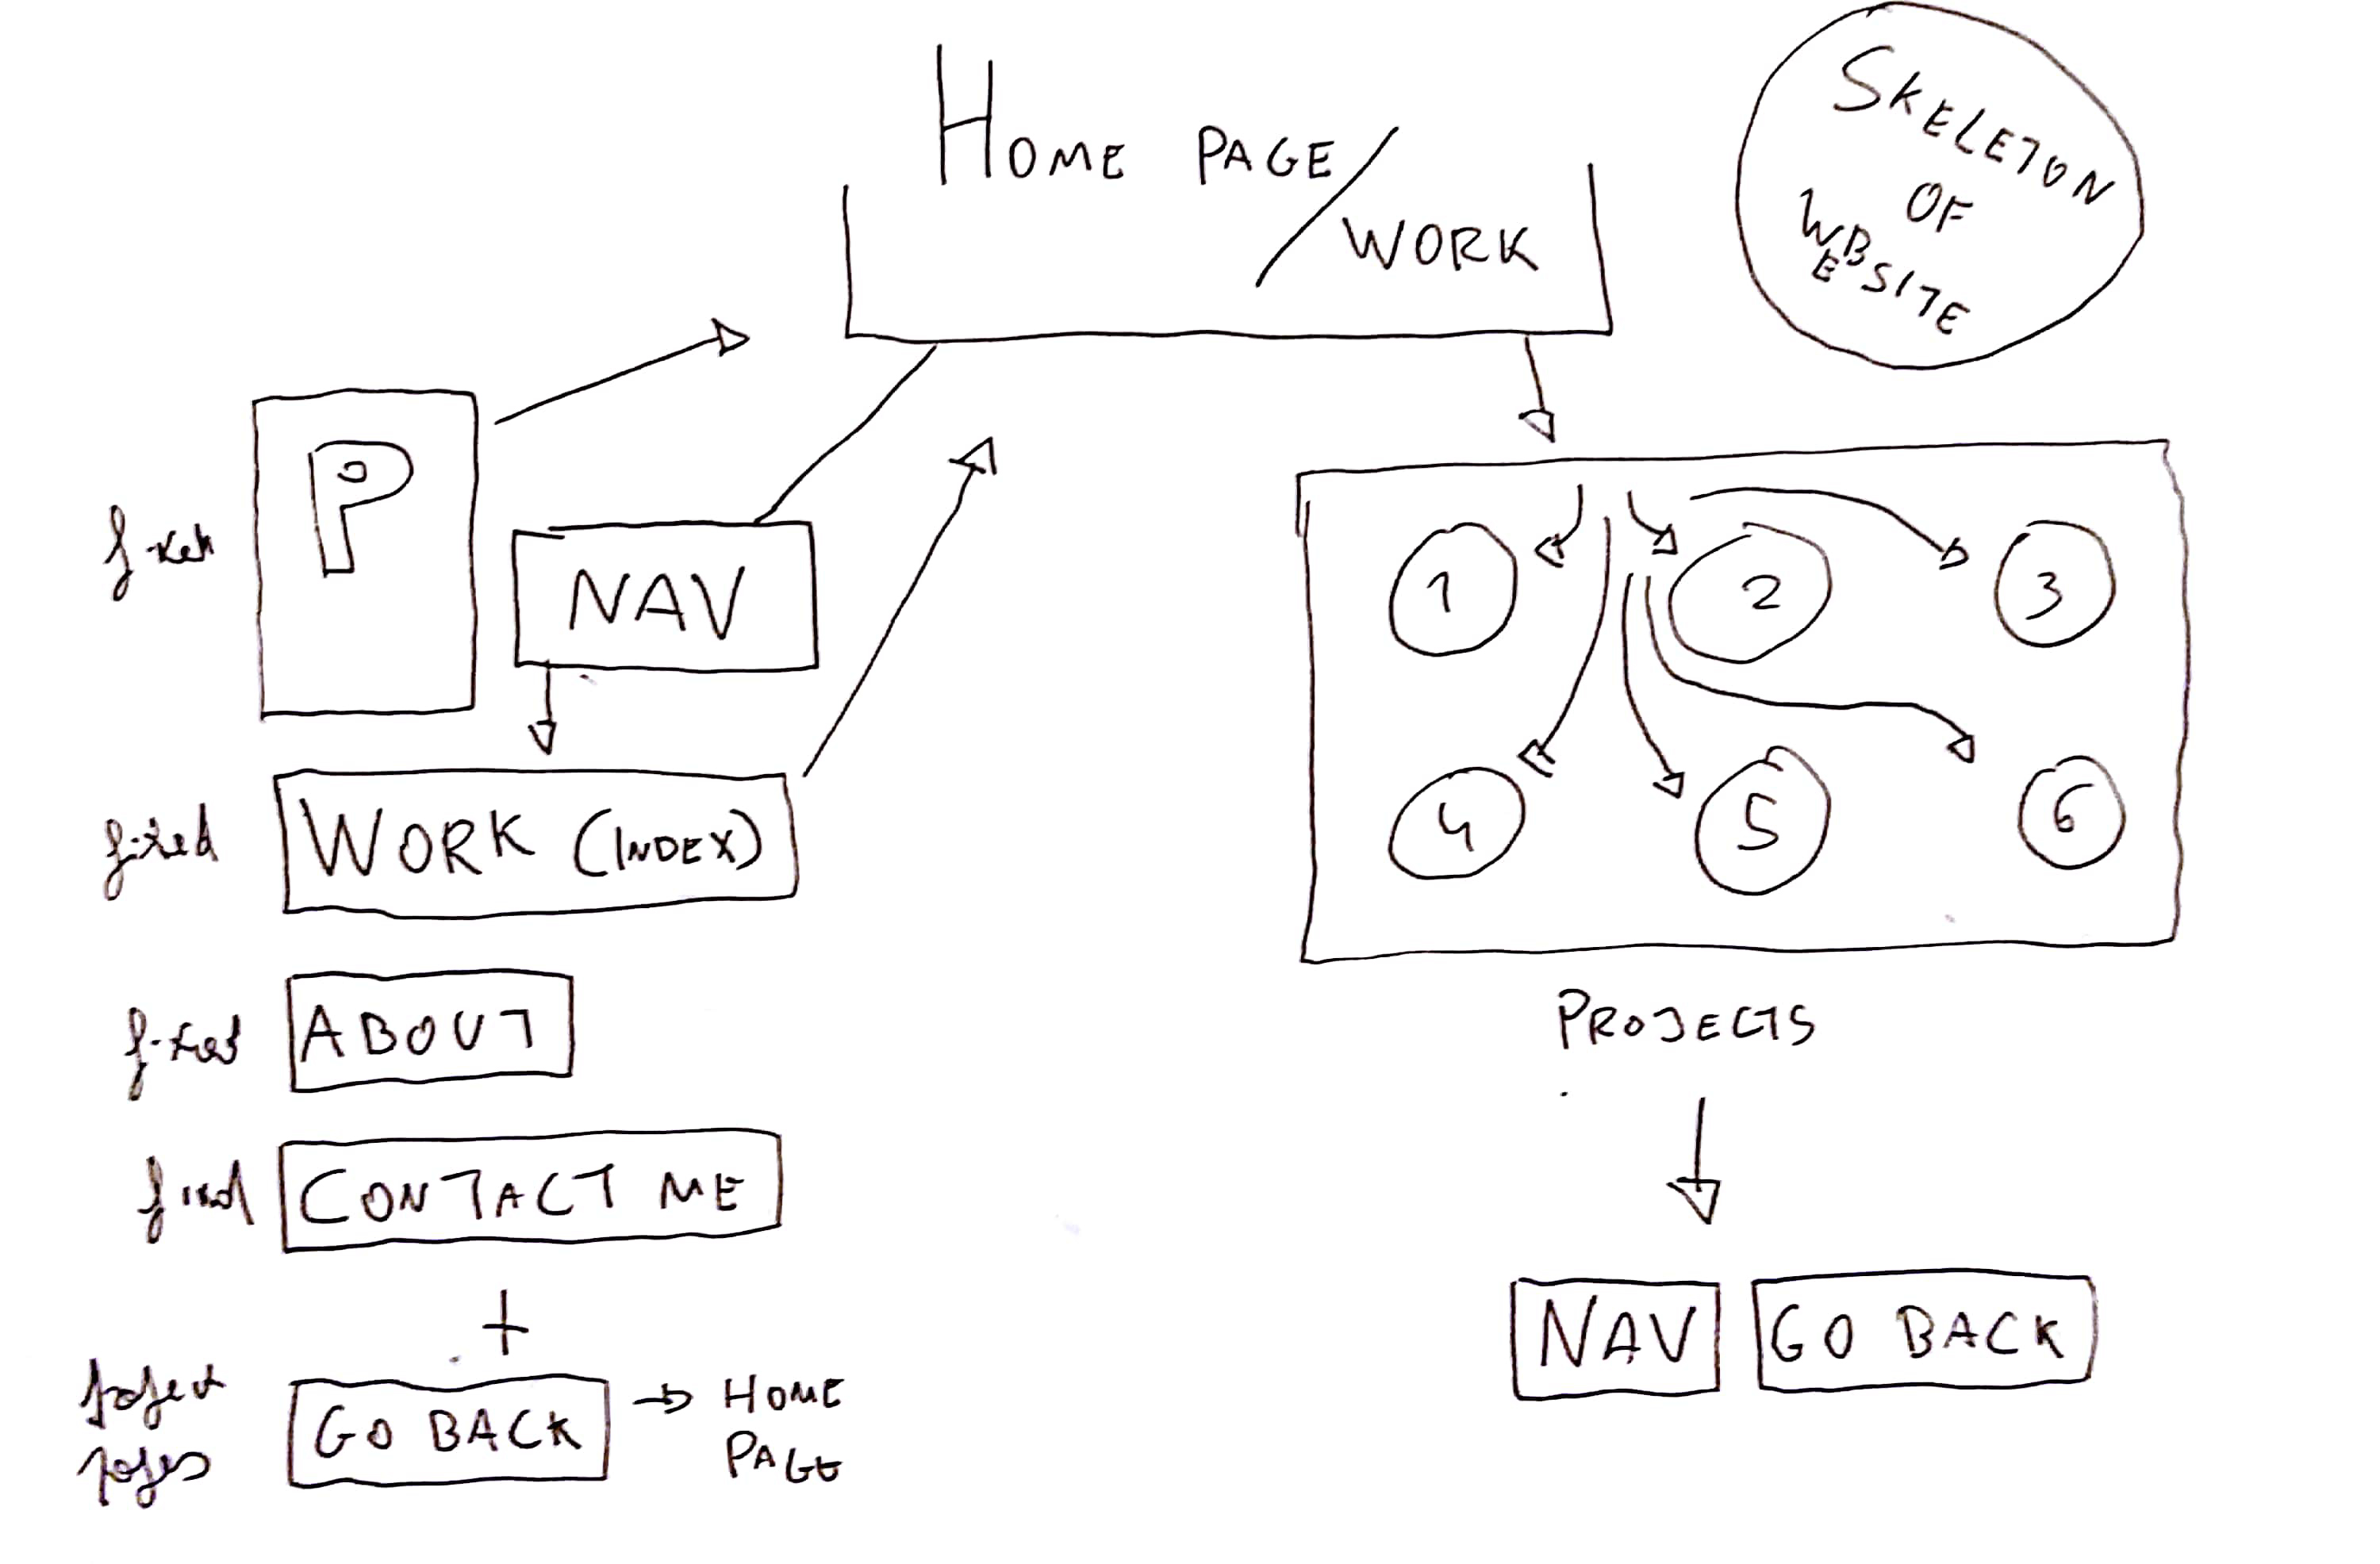 HOME PAGE/
WORK
SKELETON
OF
WEBSITE
P
fixed
NAV
fixed
WORK (INDEX)
fixed
ABOUT
fixed
CONTACT ME
+
project
pages
GO BACK
HOME
PAGE
1
2
3
4
5
6
PROJECTS
NAV
GO BACK